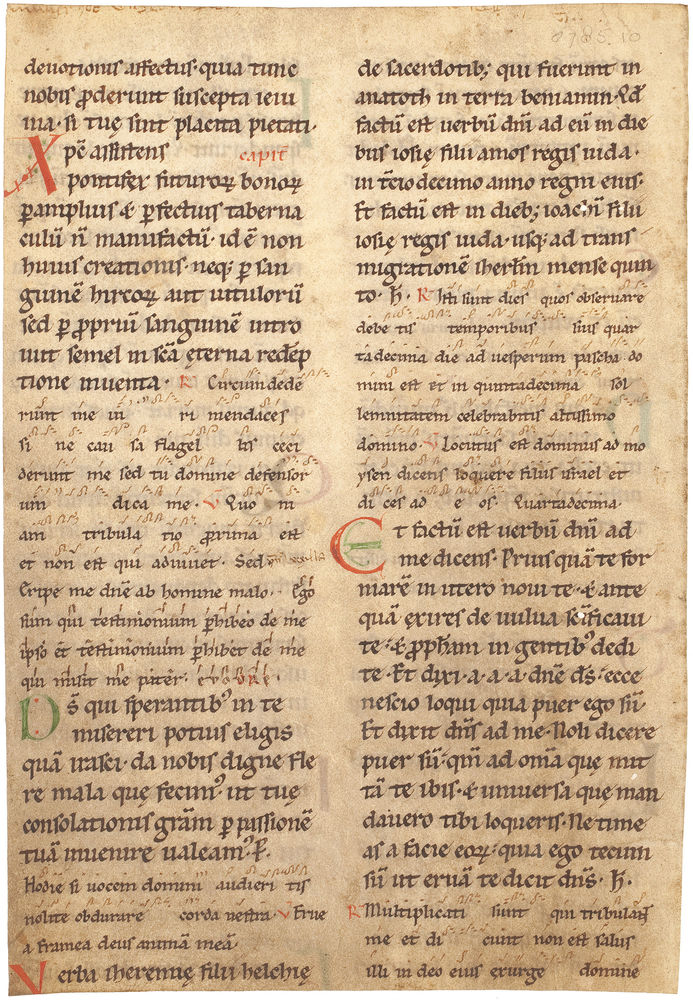 deuotionis affectus· quia tunc
nobis ꝓderunt suscepta ieiu
nia· si tuę sint placita pietati·
Xpc̄ assistens capit̄
pontifex futuroꝝ bonoꝝ
ꝑ amplius & ꝑfectius taberna
culū n̄ manufactū· id ē non
huius creationis· neq; ꝑ san
guinē hircoꝝ aut uituloꝝ
sed ꝑ ꝓpriū sanguinē intro
iuit semel in scā ęterna redēp
tione inuenta· R Circumdedē
runt me ui ri mendaces
si ne cau sa flagel lis ceci
derunt me sed tu domine defensor
um dica me· V Quo ni
am tribula tio ꝓxima est
et non est qui adiuuet· Sed
Eripe me dnē ab homine malo· Ego
sum qui testimonium ꝑhibeo de me
ipso et testimonium ꝑhibet de me
qui misit me pater· euouae
Ds̄ qui sperantib; in te
misereri potius eligis
quā irasci· da nobis digne fle
re mala que fecim; ut tuę
consolationis grām ꝑ passionē
tuā inuenire ualeam;· P̄·
Hodie si uocem domini audieri tis
nolite obdurare corda uestra· V Erue
a framea deus animā meā·
Verba iheremię filii helchię
de sacerdotib; qui fuerunt in
anatoth in terra beniamin· Qd̄
factū est uerbū dnī ad eū in die
bus iosię filii amos regis iuda·
in t̄cio decimo anno regni eius·
Et factū est in dieb; ioachī filii
iosię regis iuda· usq; ad trans
migrationē iherlm̄ mense quin
to· H̄· R Isti sunt dies quos obseruare
debe tis temporibus suis quar
tadecima die ad uesperum pascha do
mini est et in quintadecima sol
lemnitatem celebrabitis altissimo
domino· V Locutus est dominus ad mo
ysen dicens loquere filiis israel et
di ces ad e os· Quartadecima·
Et factū est uerbū dnī ad
me dicens· Priusquā te for
marē in utero noui te· & ante
quā exires de uulua sc̄ificaui
te· & ꝓph̄am in gentib; dedi
te· Et dixi· a· a· a· dnē ds̄· ecce
nescio loqui quia puer ego sū·
Et dixit dns̄ ad me· Noli dicere
puer sū· qm̄ ad om̄a quę mit
tā te ibis· & uniuersa quę man
dauero tibi loqueris· Ne time
as a facie eoꝝ· quia ego tecum
sū ut eruā te dicit dns̄· H̄·
R Multiplicati sunt qui tribulant̄
me et di cunt non est salus
illi in deo eius exurge domine